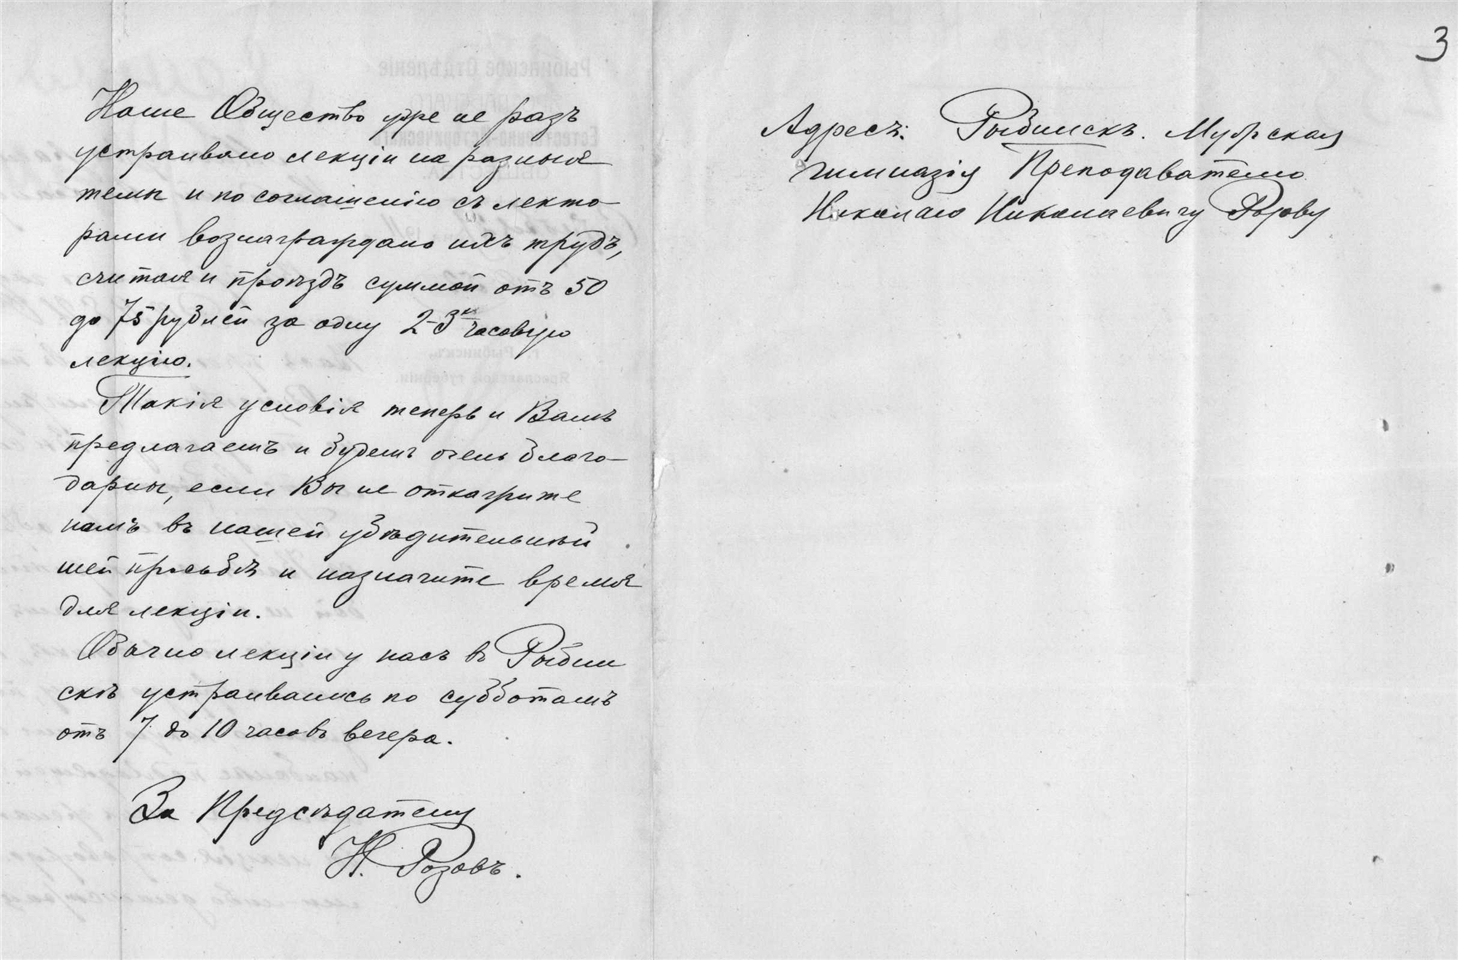 Наше Общество уже не разъ
устраивало лекціи на разныя
темы и по соглашенію съ лекто-
рами вознаграждало ихъ трудъ,
считая и проѣздъ суммой отъ 50
до 75 рублей за одну 2-3хъ часовую
лекцію.
Такія условія теперь и Вамъ
предлагаемъ и будемъ очень благо-
дарны, если Вы не откажите
намъ въ нашей убѣдительнѣй
шей просьбѣ и назначите время
для лекціи.
Обычно лекціи у насъ въ Рыбин
скѣ устраивались по субботамъ
отъ 7 до 10 часовъ вечера.
За Предсѣдателя
Н. Розовъ.
3
Адресъ: Рыбинскъ. Мужская
гимназія Преподавателю
Николаю Николаевичу Розову